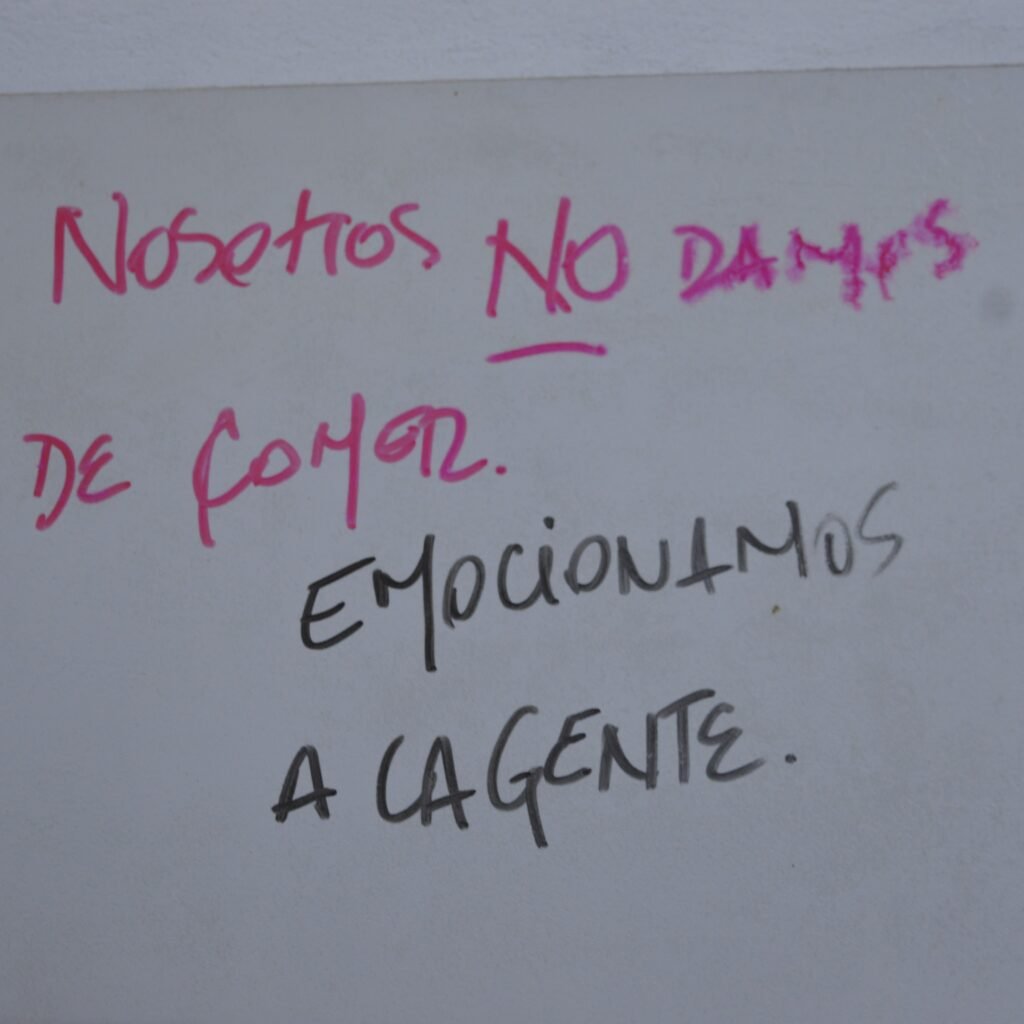 Nosotros NO DAMOS
DE COMER.
EMOCIONAMOS
A LA GENTE.